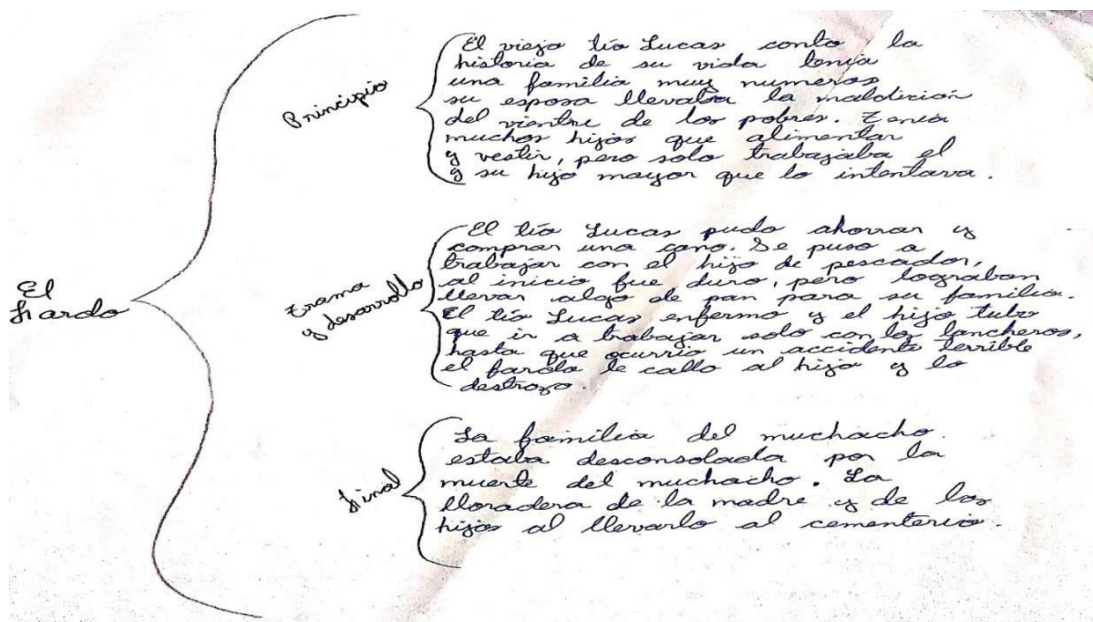 El
Fardo
Principio
El viejo tío Lucas conto la
historia de su vida tenia
una familia muy numeros
su esposa llevaba la maldicion
del vientre de los pobres. Tenia
muchos hijos que alimentar
y vestir, pero solo trabajaba el
y su hijo mayor que lo intentava.
Trama
y desarrollo
El tío Lucas pudo ahorrar y
comprar una cano. Se puso a
trabajar con el hijo de pescador,
al inicio fue duro, pero lograban
llevar algo de pan para su familia.
El tío Lucas enfermo y el hijo tubo
que ir a trabajar solo con los lancheros,
hasta que ocurrio un accidente terrible
el fardo le callo al hijo y lo
destrozo.
Final
La familia del muchacho
estaba desconsolada por la
muerte del muchacho. La
lloradera de la madre y de los
hijos al llevarlo al cementerio.